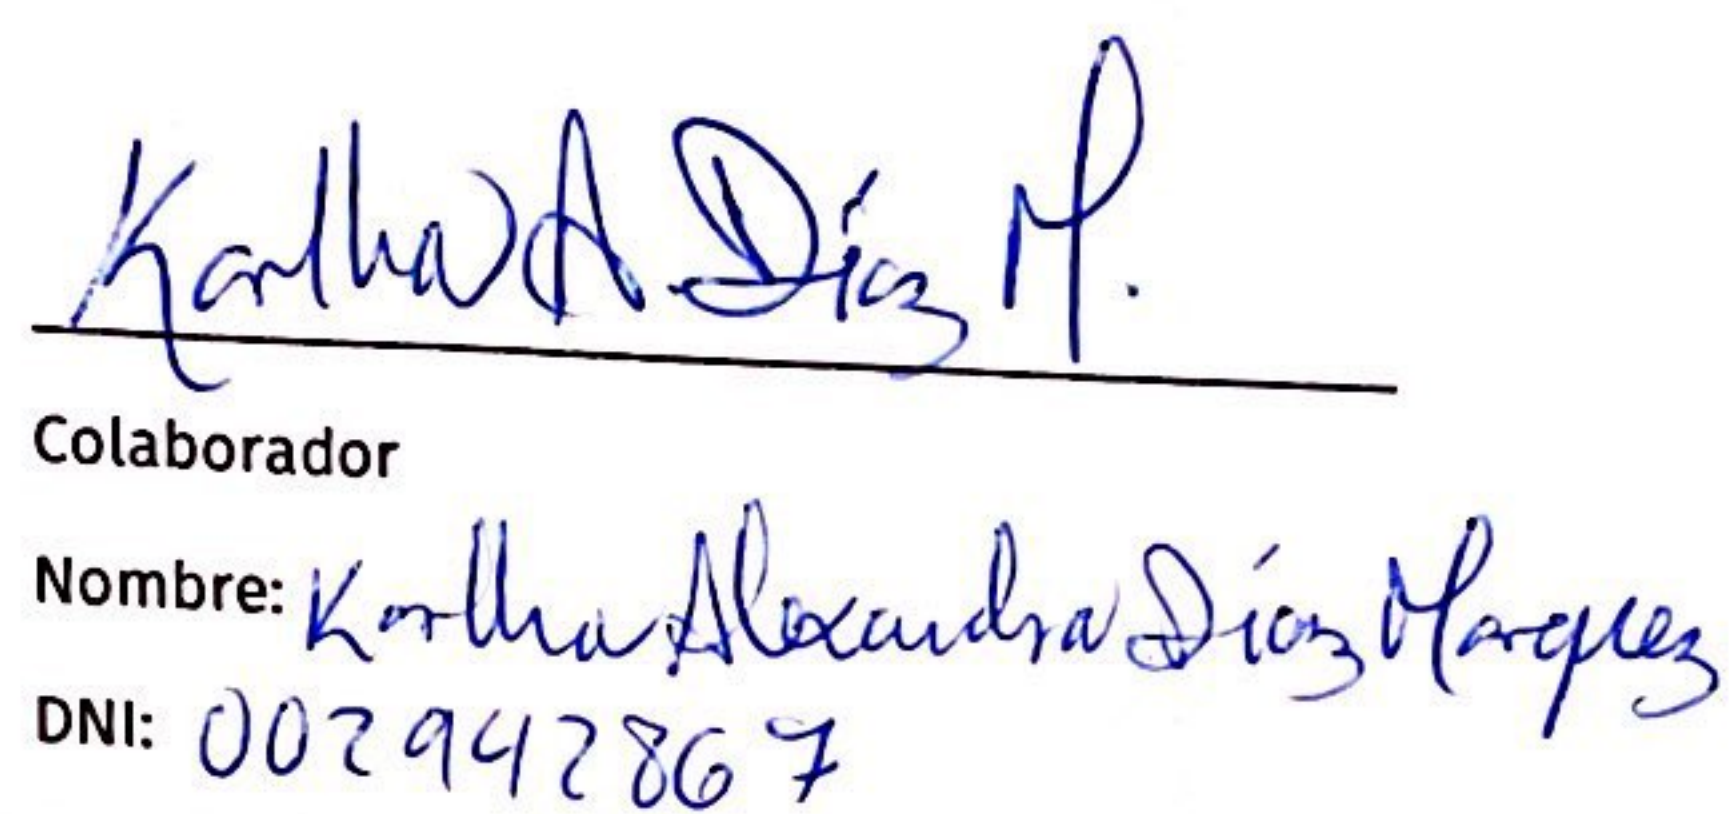 Karlha A. Díaz M.
Colaborador
Nombre: Karlha Alexandra Díaz Marquez
DNI: 002942867